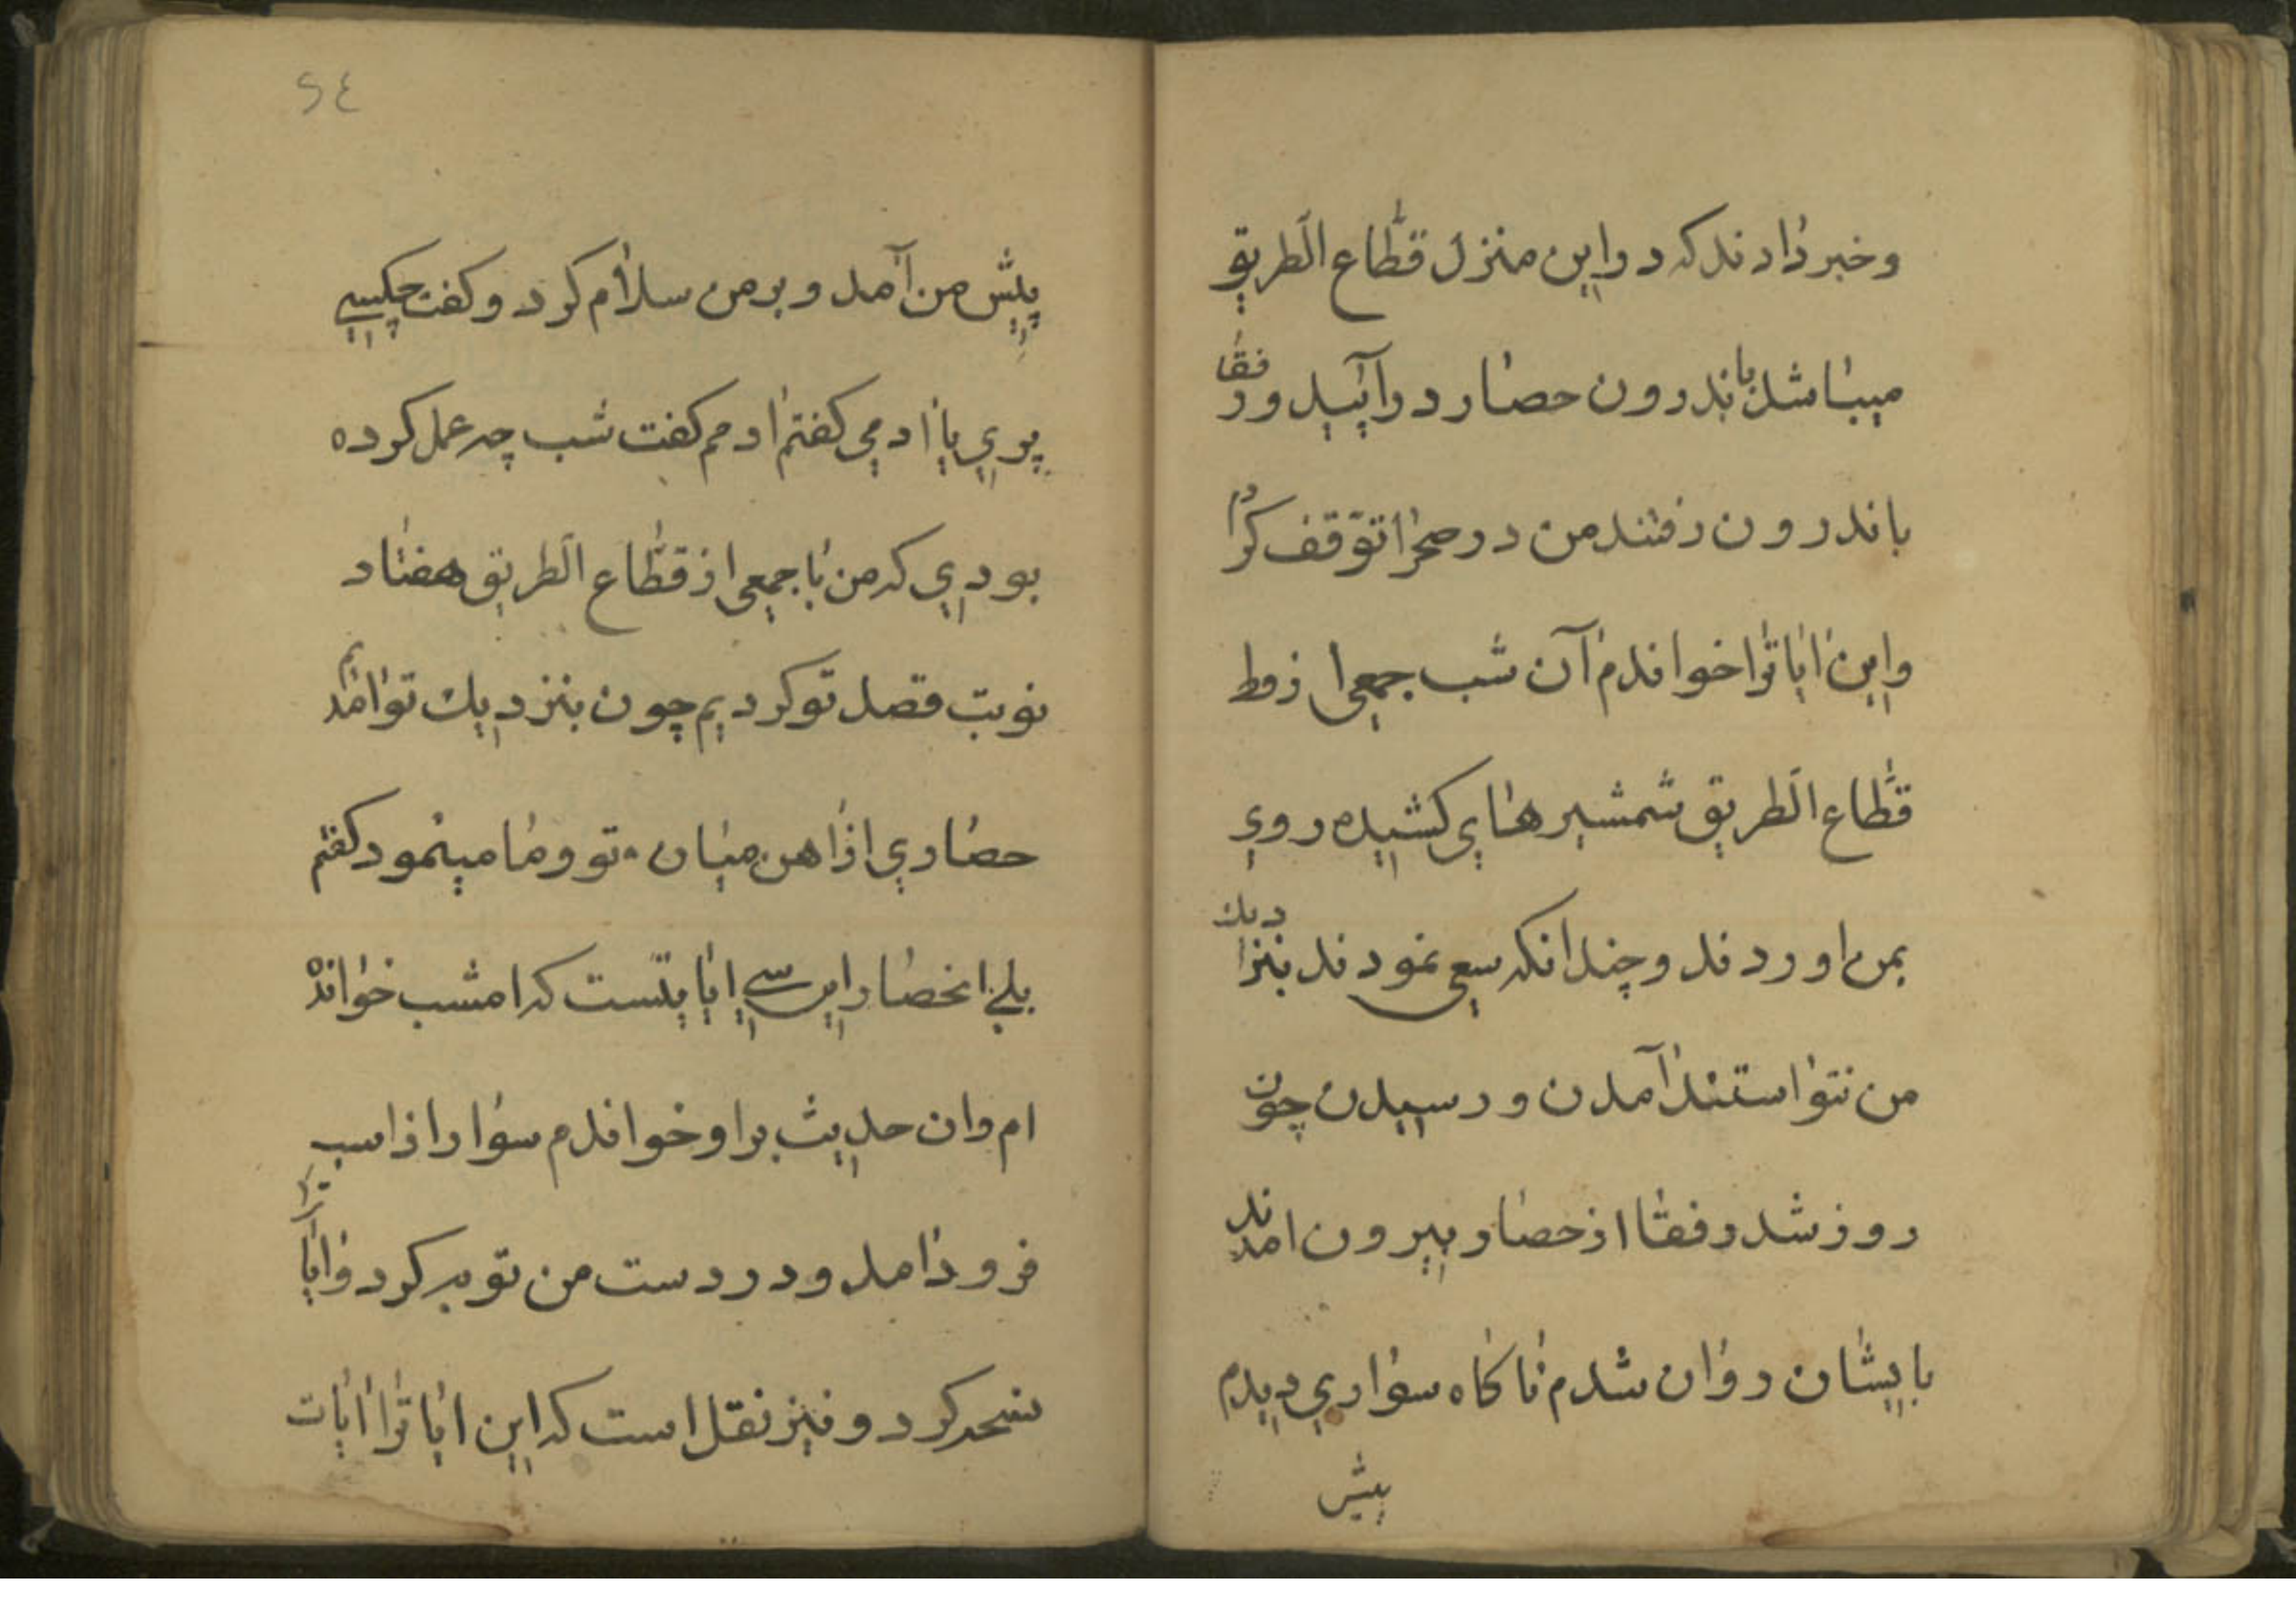 وخبر دادند که در این منزل قطّاع الطریق
میباشد باندرون حصار در آیید ورفقا
باندرون رفتند من در صحرا توّقف کردم
واین ایاترا خواندم آن شب جمعی از
قطّاع الطریق شمشیرهای کشیده روی
بمن اوردند وچندانکه سعی نمودند بنزدیك
من نتوانستند آمدن ورسیدن چون
روز شد رفقا از حصار بیرون امدند
بایشان روان شدم ناکاه سواری دیدم
پیش
٤٢
پیش من آمد وبر من سلام کرد وکفت چکسی
پری یا ادمی کفتم ادمم کفت شب چه عمل کرده
بودی که من با جمعی از قطّاع الطریق هفتاد
نوبت قصد تو کردیم چون بنزدیك تو امدیم
حصاری از اهن میان تو وما مینمود کفتم
بلی انحصار این سی ایایتست که امشب خوانده
ام وان حدیث بر او خواندم سوار از اسب
فرود امد ودر دست من توبه کرد وایاترا
نسخه کرد ونیز نقل است که این ایاترا ایات